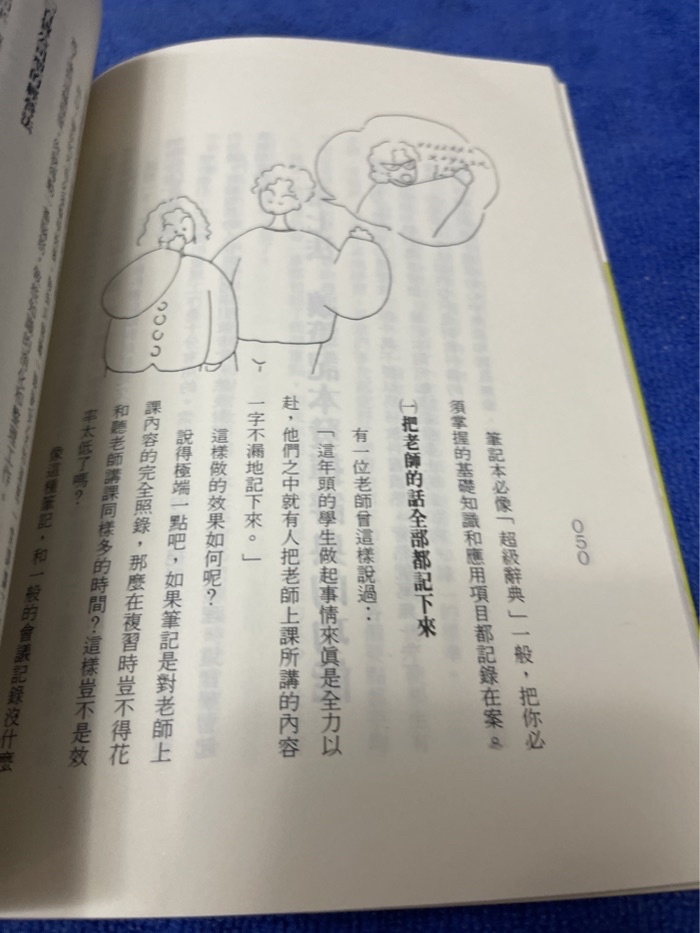 050
筆記本必像「超級辭典」一般，把你必
須掌握的基礎知識和應用項目都記錄在案。
㈠把老師的話全部都記下來
有一位老師曾這樣說過：
「這年頭的學生做起事情來眞是全力以
赴，他們之中就有人把老師上課所講的內容
一字不漏地記下來。」
這樣做的效果如何呢？
說得極端一點吧，如果筆記是對老師上
課內容的完全照錄，那麼在複習時豈不得花
和聽老師講課同樣多的時間？這樣豈不是效
率太低了嗎？
像這種筆記，和一般的會議記錄沒什麼